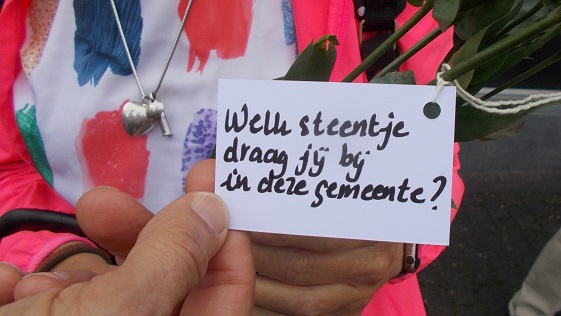 Welk steentje
draag jij bij
in deze gemeente?